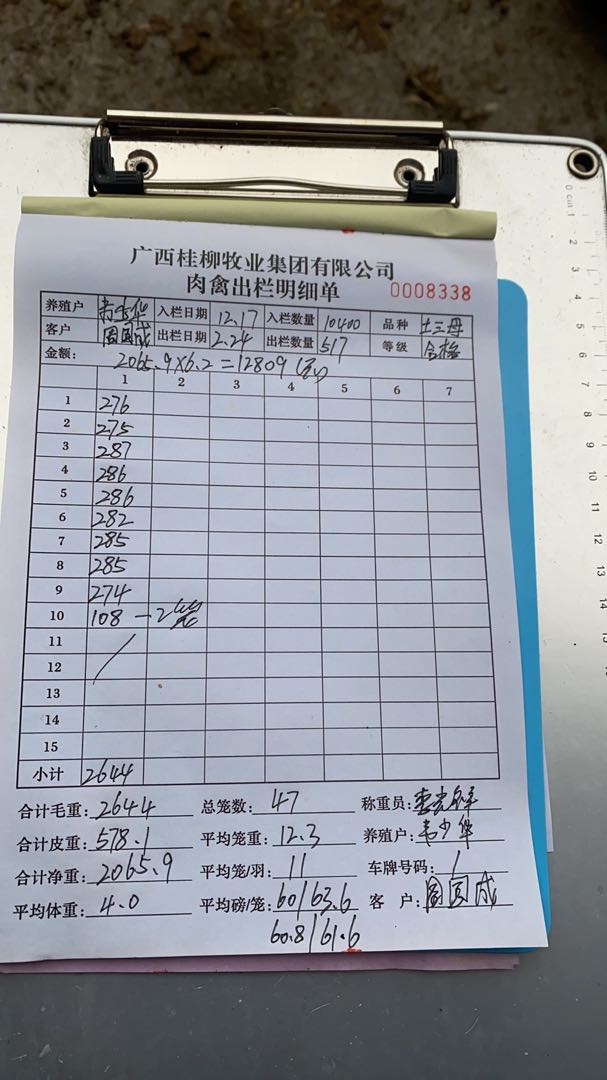 广西桂柳牧业集团有限公司
肉禽出栏明细单 0008338
养殖户 韦少华 入栏日期 12.17 入栏数量 10400 品种 土三母
客户 周国成 出栏日期 2.24 出栏数量 517 等级 合格
金额: 2065.9×6.2=12809
1 2 3 4 5 6 7
1 276
2 275
3 287
4 286
5 286
6 282
7 285
8 285
9 274
10 108 -2笼
11
12
13
14
15
小计 2644
合计毛重: 2644 总笼数: 47 称重员:
合计皮重: 578.1 平均笼重: 12.3 养殖户: 韦少华
合计净重: 2065.9 平均笼/羽: 11 车牌号码: 1
平均体重: 4.0 平均磅/笼: 60/63.6 客 户: 周国成
60.8/61.6
0 cm 1 2 3 4 5 6 7 8 9 10 11 12 13 14 15